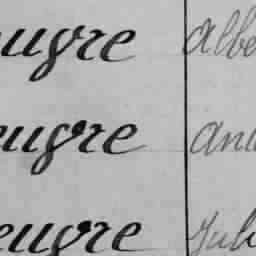 eugre Albe
eugre And
eugre Juli